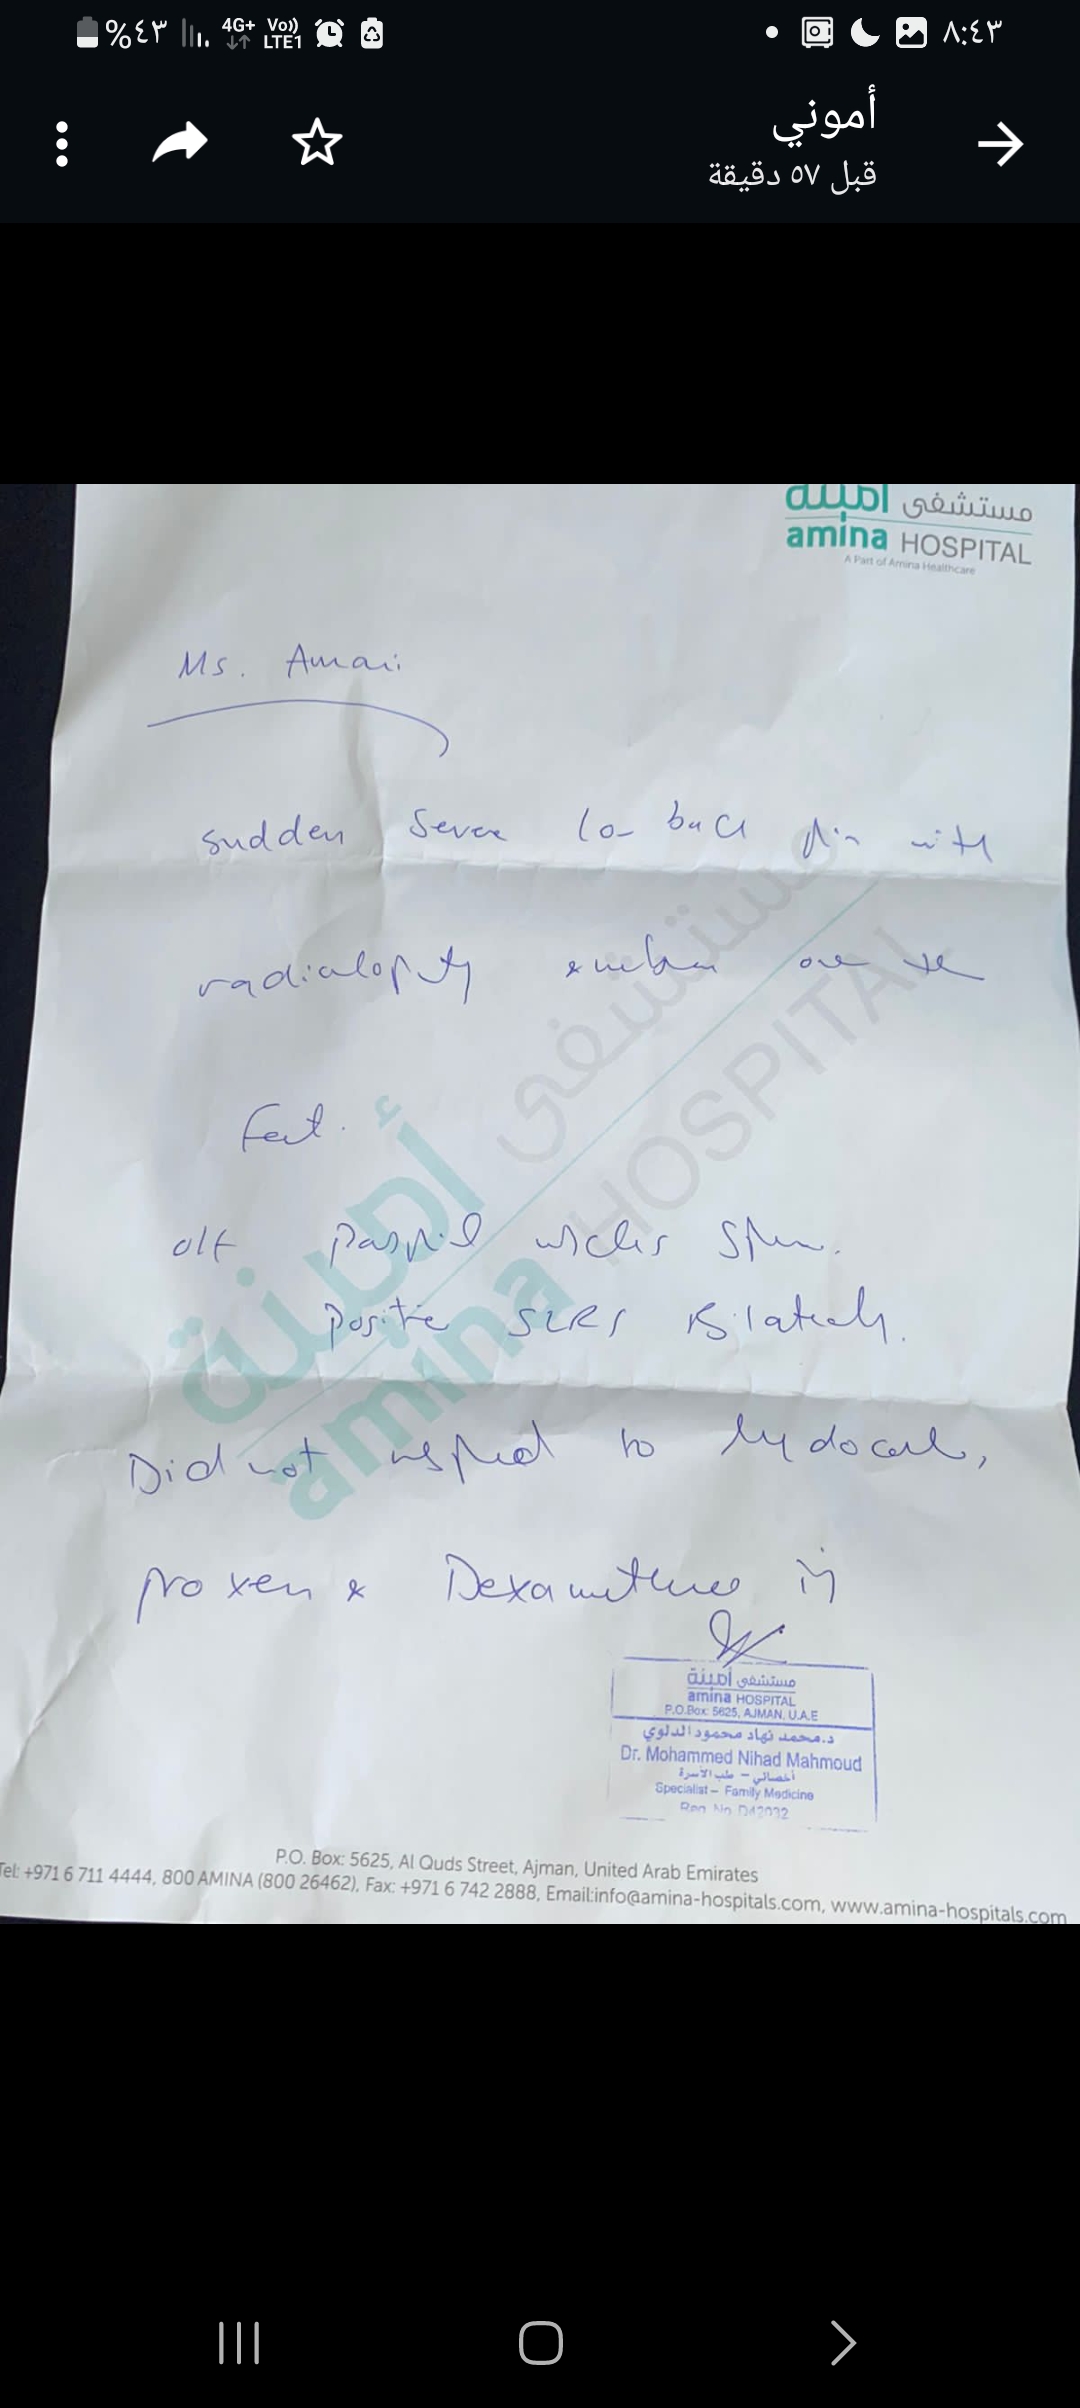 %٤٣ 4G+ Vo)) LTE1 ٨:٤٣
أموني
قبل ٥٧ دقيقة
مستشفى أمينة
amina HOSPITAL
A Part of Amina Healthcare
Ms.
sudden severe low back pain with
radiculopathy over the
Feet.
muscles spasm.
Positive SLRS Bilaterally.
Did not respond to
proxen & Dexamethasone inj
مستشفى أمينة
amina HOSPITAL
مستشفى أمينة
amina HOSPITAL
P.O.Box: 5625, AJMAN, U.A.E
د.محمد نهاد محمود الدلوي
Dr. Mohammed Nihad Mahmoud
أخصائي - طب الأسرة
Specialist - Family Medicine
Reg. No. D42032
P.O. Box: 5625, Al Quds Street, Ajman, United Arab Emirates
Tel: +971 6 711 4444, 800 AMINA (800 26462), Fax: +971 6 742 2888, Email:info@amina-hospitals.com, www.amina-hospitals.com